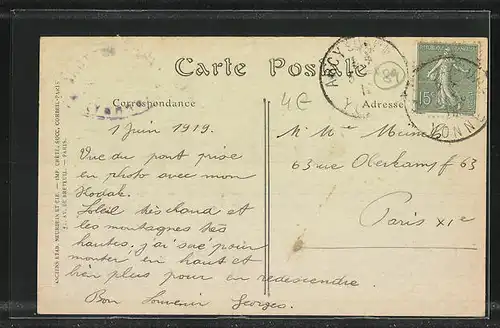 Carte Postale
Correspondance
Adresse
4€
89
REPUBLIQUE FRANÇAISE
15c
YONNE
1 Juin 1919.
Vue du pont prise
en photo avec mon
Kodak.
Soleil très chaud et
les montagnes très
hautes. j'ai sué pour
monter en haut et
bien plus pour en redescendre.
Bon Souvenir Georges.
Mr Mme
63 rue Oberkampf 63
Paris XIe